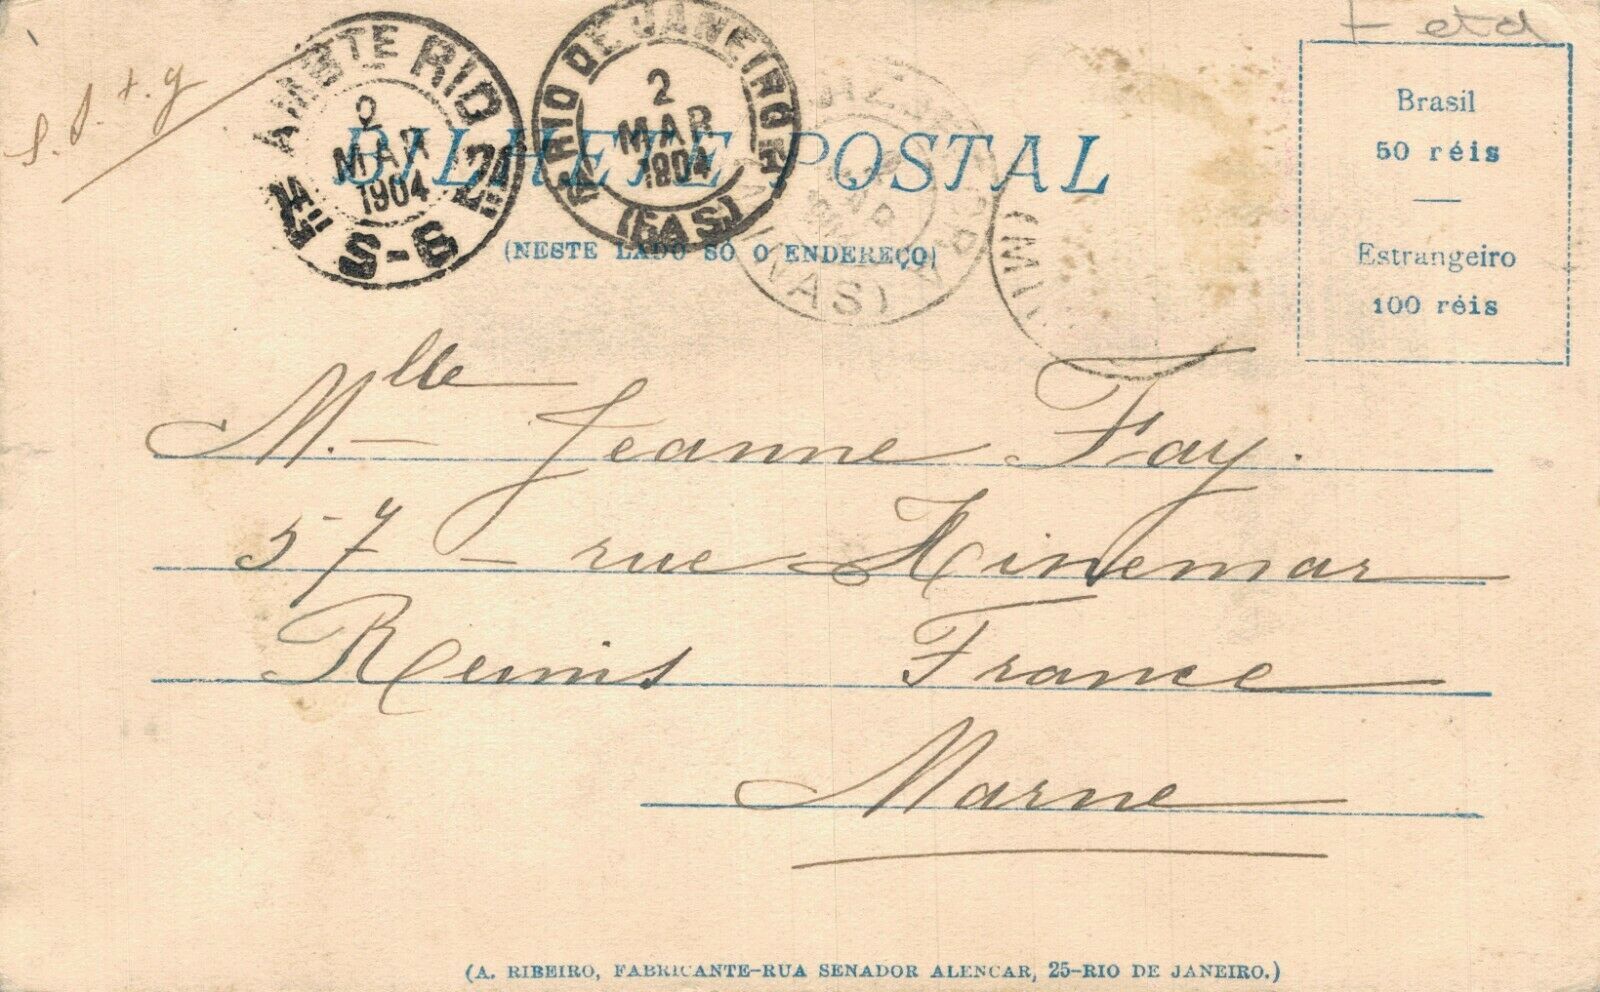 etd
s. s. t. g
AMBTE RIO
2
MAR
1904
S-6
RIO DE JANEIRO
2
MAR
1904
(6A S)
MAR
(MINAS)
(MI
BILHETE POSTAL
(NESTE LADO SÓ O ENDEREÇO)
Brasil
50 réis
Estrangeiro
100 réis
Mlle Jeanne Fay.
57 – rue Hincmar
Reims France
Marne
(A. RIBEIRO, FABRICANTE-RUA SENADOR ALENCAR, 25-RIO DE JANEIRO.)